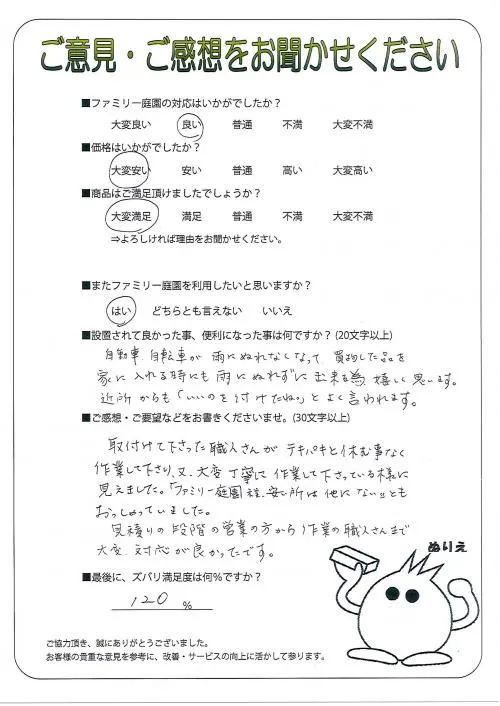 ご意見・ご感想をお聞かせください
■ファミリー庭園の対応はいかがでしたか？
大変良い 良い 普通 不満 大変不満
■価格はいかがでしたか？
大変安い 安い 普通 高い 大変高い
■商品はご満足頂けましたでしょうか？
大変満足 満足 普通 不満 大変不満
⇒よろしければ理由をお聞かせください。
■またファミリー庭園を利用したいと思いますか？
はい どちらとも言えない いいえ
■設置されて良かった事、便利になった事は何ですか？(20文字以上)
自動車、自転車が雨にぬれなくなって、買物した品を
家に入れる時にも雨にぬれずに出来る為嬉しく思います。
近所からも「いいのを付けたね。」とよく言われます。
■ご感想・ご要望などをお書きくださいませ。(30文字以上)
取付けて下さった職人さんがテキパキと休む事なく
作業して下さり、又、大変丁寧に作業して下さっている様に
見えました。「ファミリー庭園程、安い所は他にない」とも
おっしゃっていました。
見積りの段階の営業の方から作業の職人さんまで
大変対応が良かったです。
ぬりえ
■最後に、ズバリ満足度は何％ですか？
120 ％
ご協力頂き、誠にありがとうございました。
お客様の貴重な意見を参考に、改善・サービスの向上に活かして参ります。